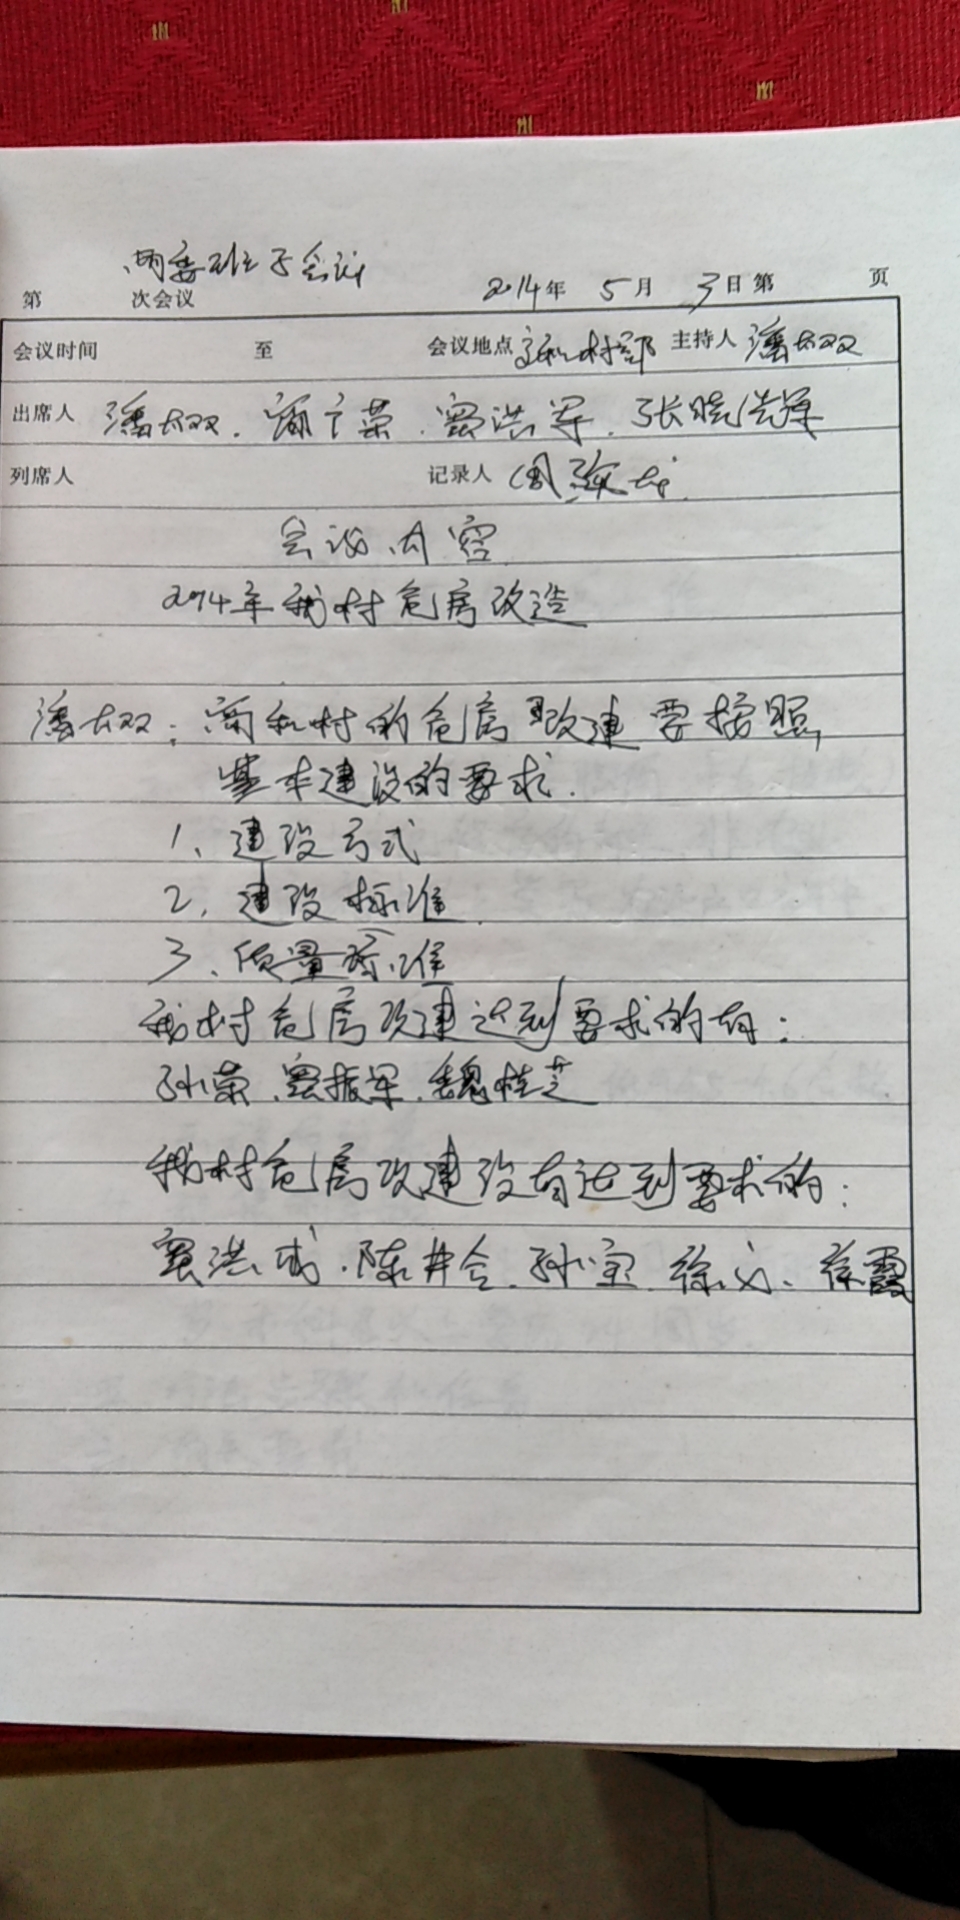 两委班子会议
第 次会议 2014年 5月 3日 第 页
会议时间 至 会议地点 村部 主持人 潘太双
出席人 潘太双、广荣、窦洪军、张晓
列席人 记录人 周
会议内容
2014年我村危房改造
潘太双:和村的危房改建要按照
基本建设的要求.
1、建设方式
2、建设标准
3、质量标准
我村危房改建达到要求的有:
孙荣、窦振军、魏桂芝
我村危房改建没有达到要求的:
窦洪、陈井合、孙宝、徐义、徐霞